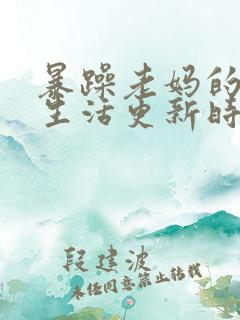 暴躁老妈的
生活更新时
段建波
未经同意禁止转载